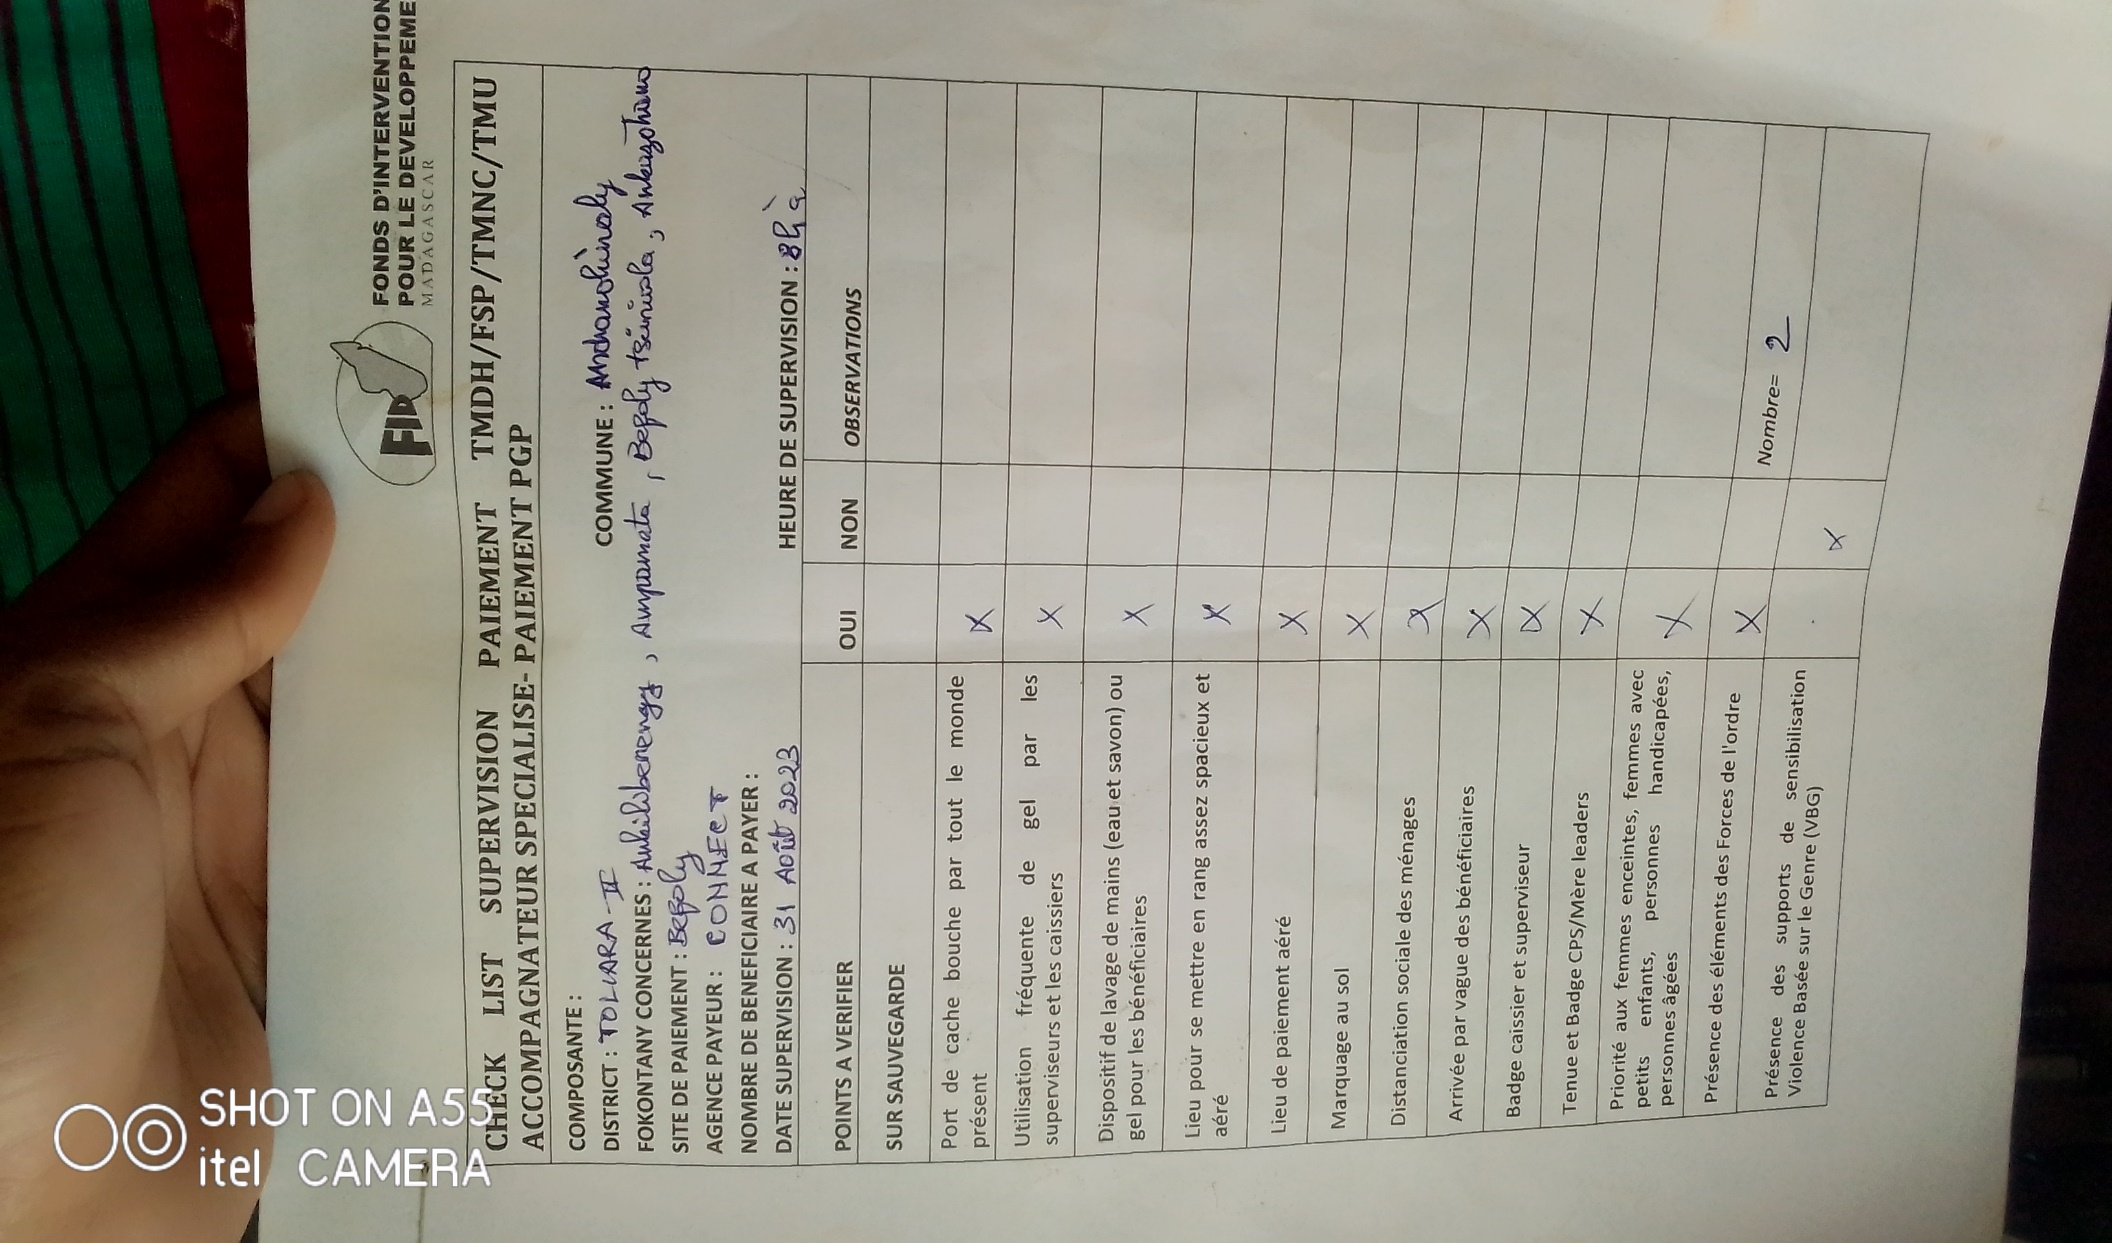 FID
FONDS D'INTERVENTION
POUR LE DEVELOPPEME
MADAGASCAR
CHECK LIST SUPERVISION PAIEMENT TMDH/FSP/TMNC/TMU
ACCOMPAGNATEUR SPECIALISE- PAIEMENT PGP
COMPOSANTE :
DISTRICT : TOLIARA-II COMMUNE :
FOKONTANY CONCERNES :
SITE DE PAIEMENT : Befoly
AGENCE PAYEUR : CONNECT
NOMBRE DE BENEFICIAIRE A PAYER :
DATE SUPERVISION : 31 Août 2023 HEURE DE SUPERVISION : 8h à
POINTS A VERIFIER OUI NON OBSERVATIONS
SUR SAUVEGARDE
Port de cache bouche par tout le monde
présent X
Utilisation fréquente de gel par les
superviseurs et les caissiers X
Dispositif de lavage de mains (eau et savon) ou
gel pour les bénéficiaires X
Lieu pour se mettre en rang assez spacieux et
aéré X
Lieu de paiement aéré X
Marquage au sol X
Distanciation sociale des ménages X
Arrivée par vague des bénéficiaires X
Badge caissier et superviseur X
Tenue et Badge CPS/Mère leaders X
Priorité aux femmes enceintes, femmes avec
petits enfants, personnes handicapées,
personnes âgées X
Présence des éléments des Forces de l'ordre X Nombre= 2
Présence des supports de sensibilisation
Violence Basée sur le Genre (VBG) X
SHOT ON A55
itel CAMERA